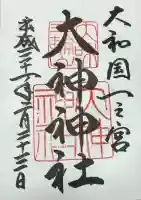 大和国一之宮
大神神社
平成二十一年二月二十三日